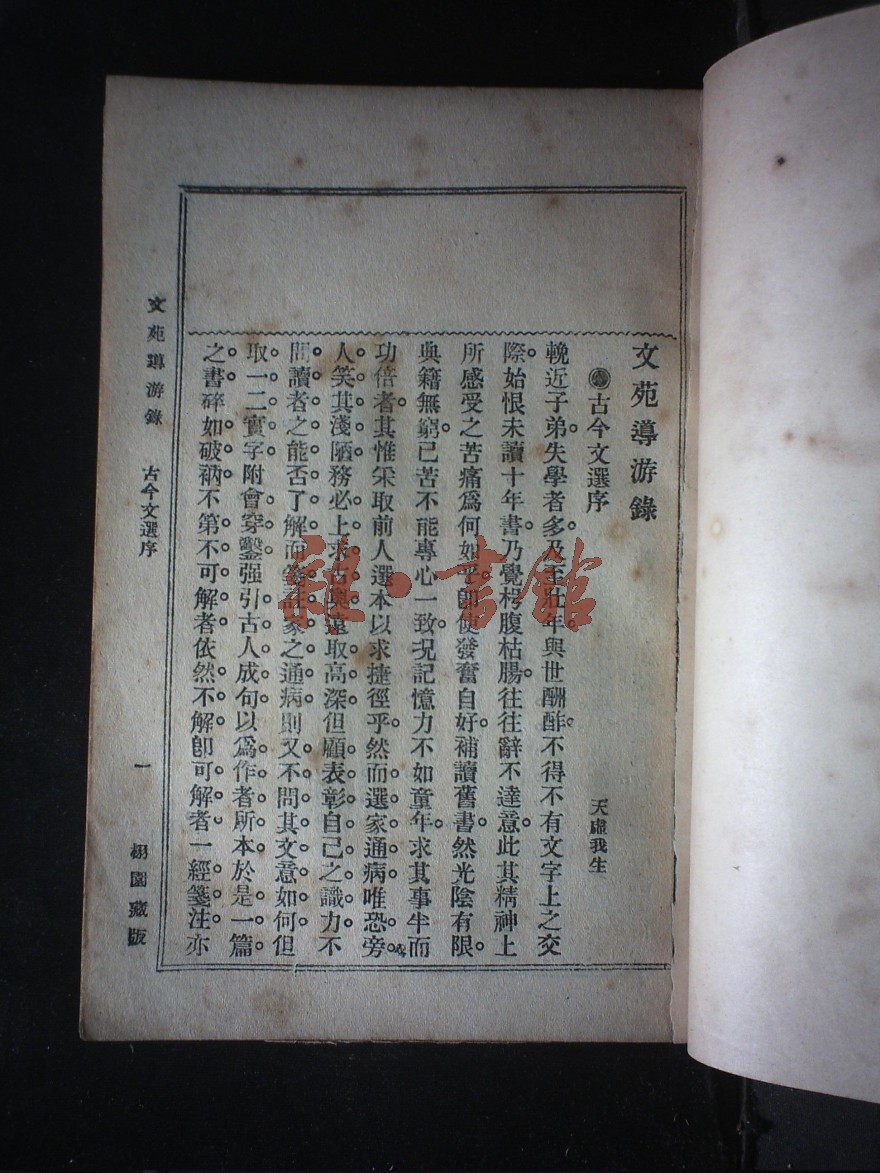 文苑導游錄
古今文選序
天虛我生
輓近子弟失學者多及至壯年與世酬酢不得不有文字上之交
際始恨未讀十年書乃覺枵腹枯腸往往辭不達意此其精神上
所感受之苦痛爲何如乎卽使發奮自好補讀舊書然光陰有限
典籍無窮已苦不能專心一致况記憶力不如童年求其事半而
功倍者其惟采取前人選本以求捷徑乎然而選家通病唯恐旁
人笑其淺陋務必上求古奧遠取高深但顧表彰自己之識力不
問讀者之能否了解而箋註家之通病則又不問其文意如何但
取一二實字附會穿鑿强引古人成句以爲作者所本於是一篇
之書碎如破衲不第不可解者依然不解卽可解者一經箋注亦
文苑導游錄 古今文選序 一 栩園藏版
雜·書館